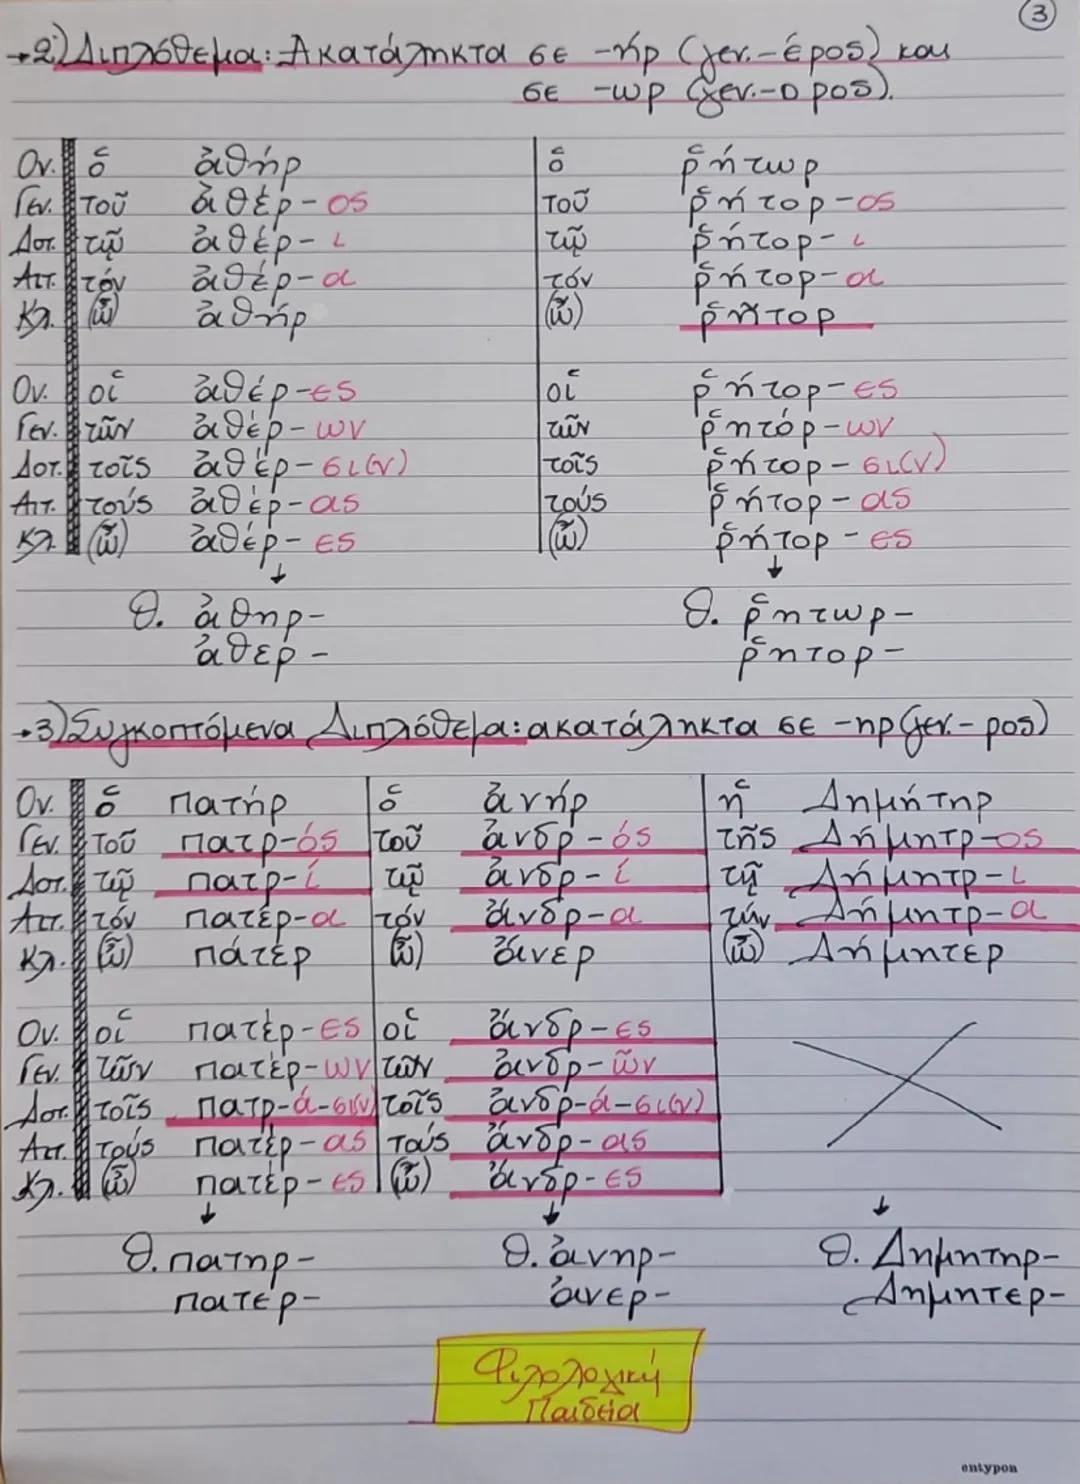 3
→2) Διπλόθεμα: Ακατάληκτα σε -ήρ (γεν.-έρος) και
σε -ωρ (γεν.-ορος).
Ον. ὁ ἀθήρ ὁ ῥήτωρ
Γεν. τοῦ ἀθέρ-ος τοῦ ῥήτορ-ος
Δοτ. τῷ ἀθέρ-ι τῷ ῥήτορ-ι
Αιτ. τόν ἀθέρ-α τόν ῥήτορ-α
Κλ. (ὦ) ἀθήρ (ὦ) ῥῆτορ
Ον. οἱ ἀθέρ-ες οἱ ῥήτορ-ες
Γεν. τῶν ἀθέρ-ων τῶν ῥητόρ-ων
Δοτ. τοῖς ἀθέρ-σι(ν) τοῖς ῥήτορ-σι(ν)
Αιτ. τούς ἀθέρ-ας τούς ῥήτορ-ας
Κλ. (ὦ) ἀθέρ-ες (ὦ) ῥήτορ-ες
↓ ↓
Θ. ἀθηρ- Θ. ῥητωρ-
ἀθερ- ῥητορ-
→3) Συγκοπτόμενα Διπλόθεμα: ακατάληκτα σε -ηρ (γεν.-ρος)
Ον. ὁ πατήρ ὁ ἀνήρ ἡ Δημήτηρ
Γεν. τοῦ πατρ-ός τοῦ ἀνδρ-ός τῆς Δήμητρ-ος
Δοτ. τῷ πατρ-ί τῷ ἀνδρ-ί τῇ Δήμητρ-ι
Αιτ. τόν πατέρ-α τόν ἄνδρ-α τήν Δήμητρ-α
Κλ. (ὦ) πάτερ (ὦ) ἄνερ (ὦ) Δήμητερ
Ον. οἱ πατέρ-ες οἱ ἄνδρ-ες
Γεν. τῶν πατέρ-ων τῶν ἀνδρ-ῶν
Δοτ. τοῖς πατρ-ά-σι(ν) τοῖς ἀνδρ-ά-σι(ν)
Αιτ. τούς πατέρ-ας τούς ἄνδρ-ας
Κλ. (ὦ) πατέρ-ες (ὦ) ἄνδρ-ες
↓ ↓ ↓
Θ. πατηρ- Θ. ἀνηρ- Θ. Δημητηρ-
πατερ- ἀνερ- Δημητερ-
Φιλολογική
Παιδεία
entypon